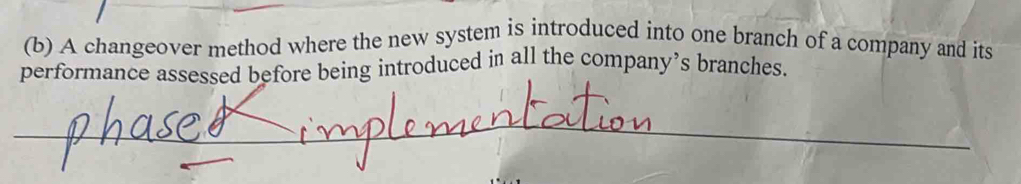 (b) A changeover method where the new system is introduced into one branch of a company and its
performance assessed before being introduced in all the company's branches.
phased implementation